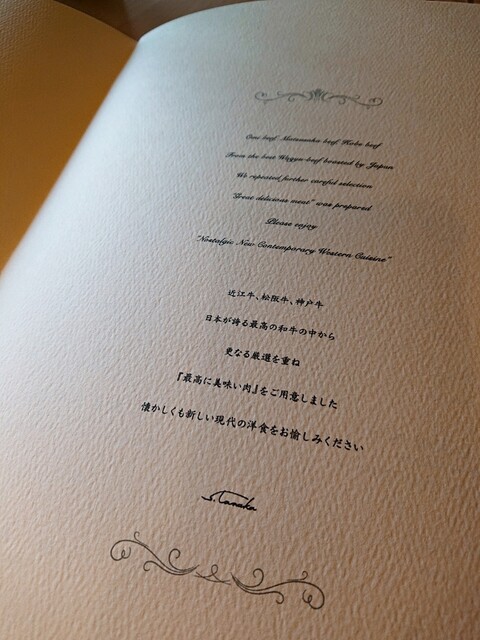 Omi beef Matsusaka beef Kobe beef
From the best Wagyu-beef boasted by Japan
We repeated further careful selection
"Great delicious meat" was prepared
Please enjoy
"Nostalgic New Contemporary Western Cuisine"
近江牛、松阪牛、神戸牛
日本が誇る最高の和牛の中から
更なる厳選を重ね
『最高に美味い肉』をご用意しました
懐かしくも新しい現代の洋食をお愉しみください
S.Tanaka